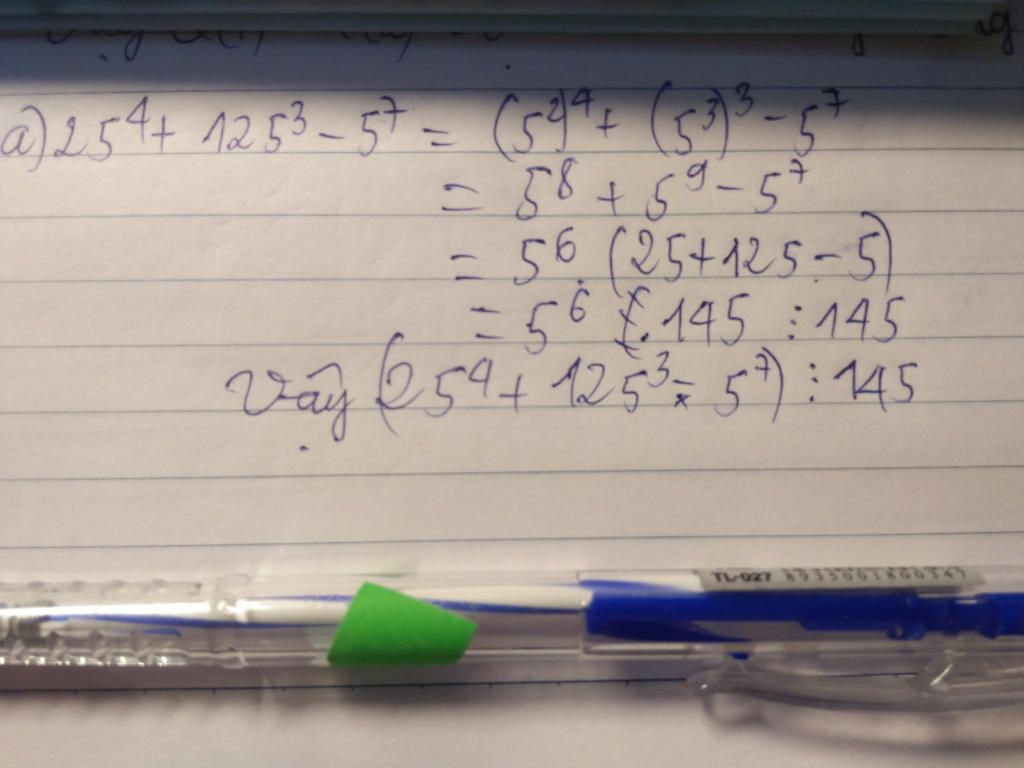 a) 25⁴ + 125³ - 5⁷ = (5²)⁴ + (5³)³ - 5⁷
= 5⁸ + 5⁹ - 5⁷
= 5⁶ . (25 + 125 - 5)
= 5⁶ . 145 ⋮ 145
Vậy (25⁴ + 125³ - 5⁷) ⋮ 145
TL-027 8935001800347